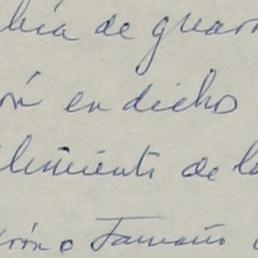 bía de guar
ón en dicho
limiento de la
ión o Tamaño